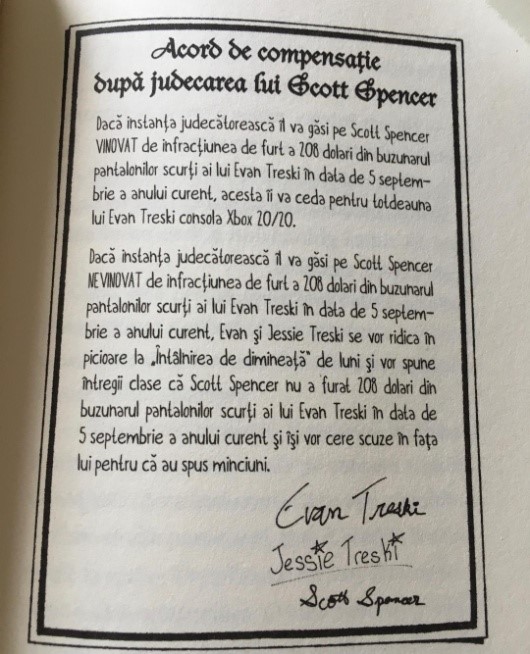 Acord de compensație
după judecarea lui Scott Spencer
Dacă instanța judecătorească îl va găsi pe Scott Spencer
VINOVAT de infracțiunea de furt a 208 dolari din buzunarul
pantalonilor scurți ai lui Evan Treski în data de 5 septem-
brie a anului curent, acesta îi va ceda pentru totdeauna
lui Evan Treski consola Xbox 20/20.
Dacă instanța judecătorească îl va găsi pe Scott Spencer
NEVINOVAT de infracțiunea de furt a 208 dolari din buzunarul
pantalonilor scurți ai lui Evan Treski în data de 5 septem-
brie a anului curent, Evan și Jessie Treski se vor ridica în
picioare la „Întâlnirea de dimineață” de luni și vor spune
întregii clase că Scott Spencer nu a furat 208 dolari din
buzunarul pantalonilor scurți ai lui Evan Treski în data de
5 septembrie a anului curent și își vor cere scuze în fața
lui pentru că au spus minciuni.
Evan Treski
Jessie Treski
Scott Spencer